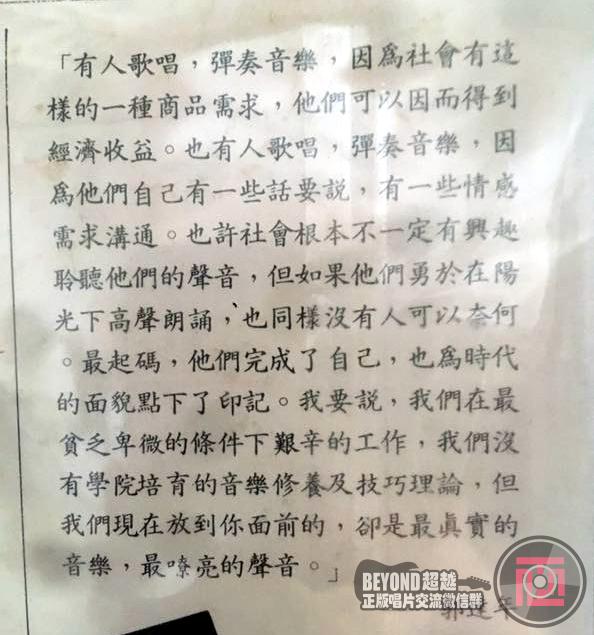 「有人歌唱，彈奏音樂，因爲社會有這
樣的一種商品需求，他們可以因而得到
經濟收益。也有人歌唱，彈奏音樂，因
爲他們自己有一些話要説，有一些情感
需求溝通。也許社會根本不一定有興趣
聆聽他們的聲音，但如果他們勇於在陽
光下高聲朗誦，也同樣沒有人可以奈何
。最起碼，他們完成了自己，也爲時代
的面貌點下了印記。我要説，我們在最
貧乏卑微的條件下艱辛的工作，我們沒
有學院培育的音樂修養及技巧理論，但
我們現在放到你面前的，卻是最眞實的
音樂，最嘹亮的聲音。」
BEYOND超越
正版唱片交流微信群